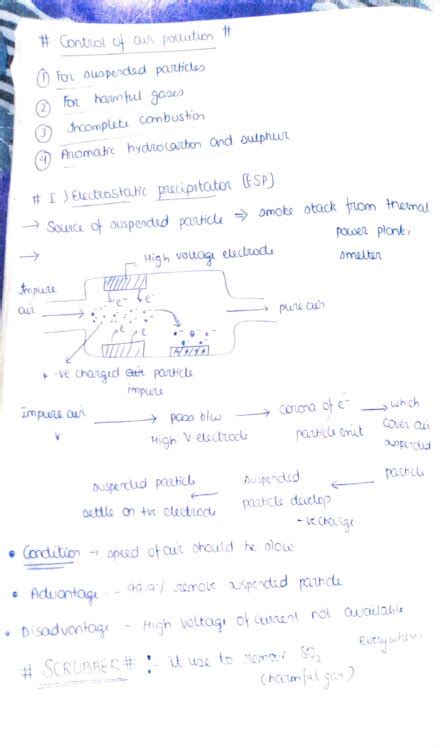 # Control of air pollution #
① For suspended particles
② For harmful gases
③ Incomplete combustion
④ Aromatic hydrocarbon and sulphur
# I) Electrostatic precipitator [ESP]
→ Source of suspended particle ⇒ smoke stack from thermal
power plant,
smelter
→
High voltage electrode
Impure
air
e⁻ e⁻
pure air
e e
* -ve charged air particle
impure
Impure air → pass b/w → corona of e⁻ → which
High V electrode particle emit cover air
suspended
particle
suspended particle ← suspended ←
settle on +ve electrode particle develop
-ve charge
• Condition → speed of air should be slow
• Advantage - 99.9% remove suspended particle
• Disadvantage - High voltage of current not available
Everywhere
# SCRUBBER # :- it use to remove SO₂
(harmful gas)